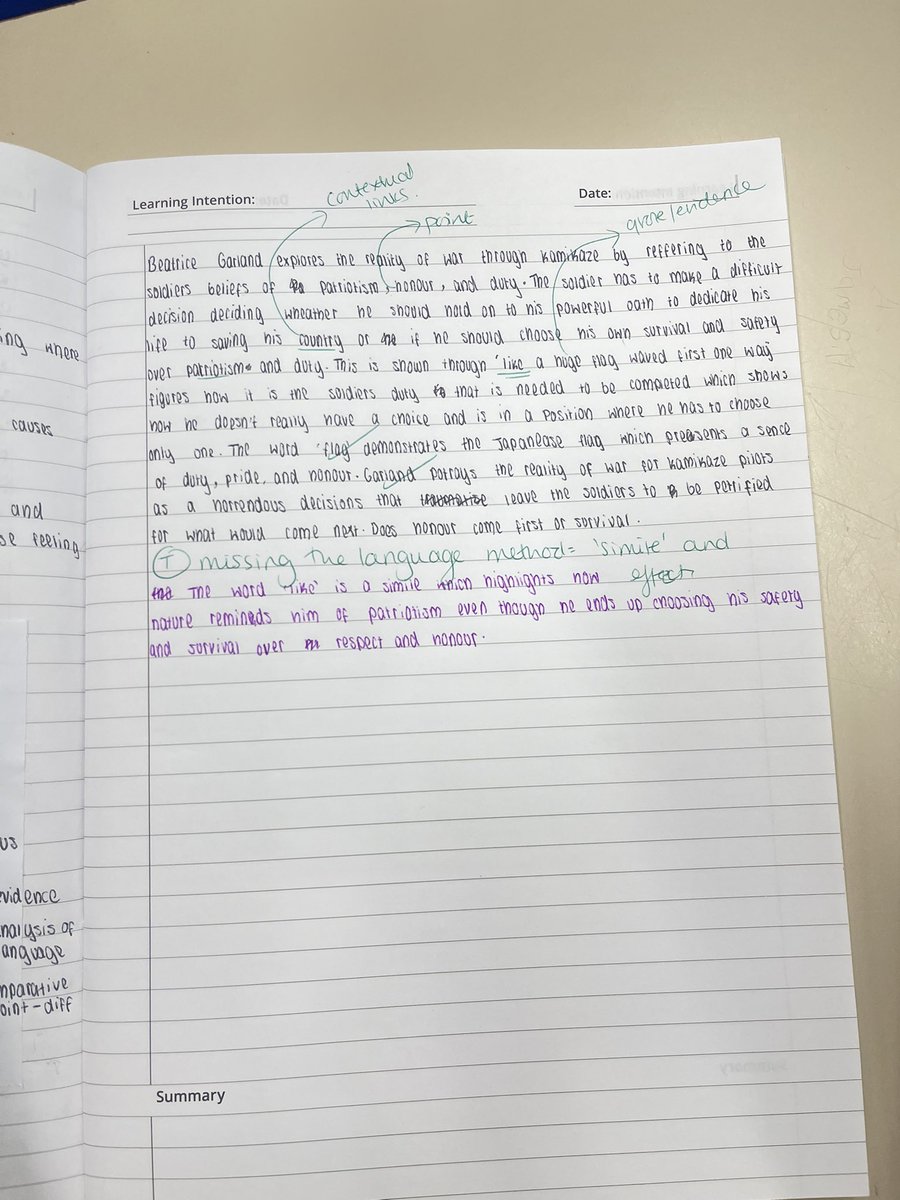 Learning Intention:
Date:
contextual
links.
point
quote/evidence
Beatrice Garland explores the reality of war through kamikaze by reffering to the
soldiers beliefs of patriotism, honour, and duty. The soldier has to make a difficult
decision deciding wheather he should hold on to his powerful oath to dedicate his
life to saving his country or if he should choose his own survival and safety
over patriotism and duty. This is shown through 'like a huge flag waved first one way
figures how it is the soldiers duty that is needed to be completed which shows
how he doesn't really have a choice and is in a position where he has to choose
only one. The word 'flag' demonstrates the Japanease flag which presents a sence
of duty, pride, and honour. Garland potrays the reality of war for kamikaze pilots
as a horrendous decisions that leave the soldiers to be petrified
for what would come next. Does honour come first or survival.
T missing the language method = 'simile' and
effect
The word 'like' is a simile which highlights how
nature reminds him of patriotism even though he ends up choosing his safety
and survival over respect and honour.
Summary
ing where
causes
and
se feeling
us
evidence
nalysis of
anguage
mparative
oint - diff